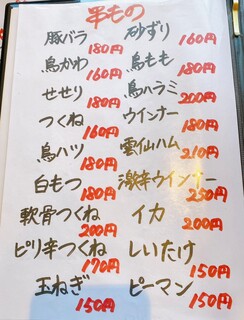 串もの
豚バラ 180円
砂ずり 160円
鳥かわ 160円
鳥もも 180円
せせり 180円
鳥ハラミ 200円
つくね 160円
ウインナー 180円
鳥ハツ 180円
雲仙ハム 210円
白もつ 180円
激辛ウインナー 250円
軟骨つくね 200円
イカ 200円
ピリ辛つくね 170円
しいたけ 150円
玉ねぎ 150円
ピーマン 150円